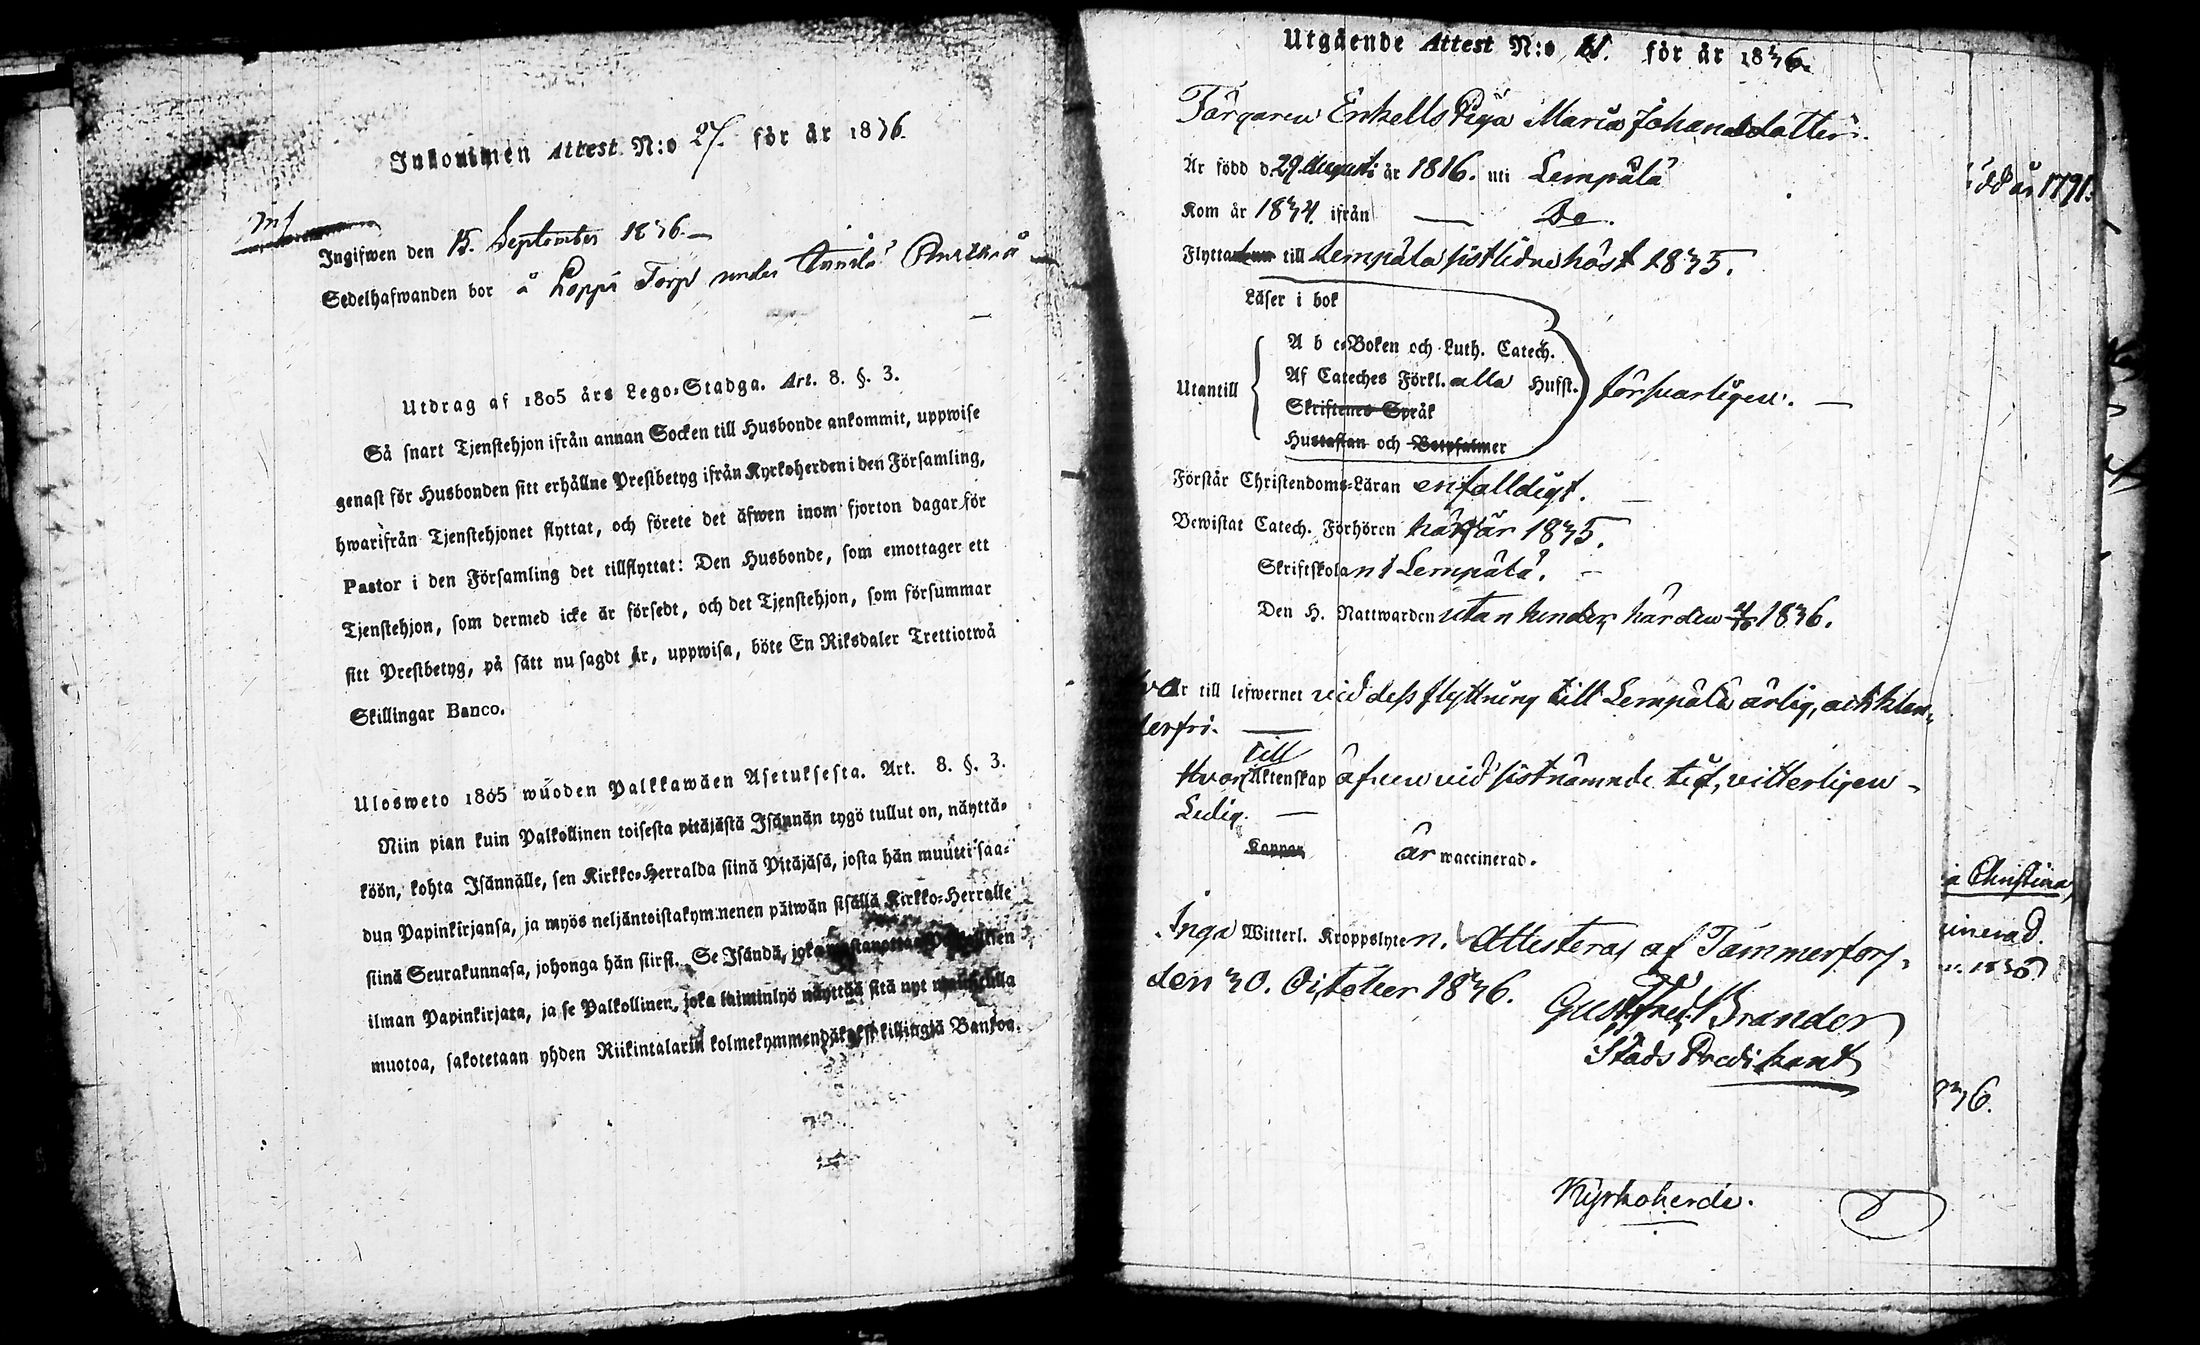 Inkommen Attest N:o 27. för år 1836.
Ingifwen den 15. September 1836.
Sedelhafwanden bor å Loppi Torp under
Utdrag af 1805 års Lego-Stadga. Art. 8. §. 3.
Så snart Tjenstehjon ifrån annan Socken till Husbonde ankommit, uppwise
genast för Husbonden sitt erhållne Prestbetyg ifrån Kyrkoherden i den Församling,
hwarifrån Tjenstehjonet flyttat, och förete det äfwen inom fjorton dagar för
Pastor i den Församling det tillflyttat: Den Husbonde, som emottager ett
Tjenstehjon, som dermed icke är försedt, och det Tjenstehjon, som försummar
sitt Prestbetyg, på sätt nu sagdt är, uppwisa, böte En Riksdaler Trettiotwå
Skillingar Banco.
Ulosweto 1805 wuoden Palkkawäen Asetuksesta. Art. 8. §. 3.
Niin pian kuin Palkollinen toisesta pitäjästä Isännän tygö tullut on, näyttä-
köön, kohta Isännälle, sen Kirkko-Herralda siinä Pitäjäsä, josta hän muutti saa-
dun Papinkirjansa, ja myös neljäntoistakymmenen päiwän sisällä Kirkko-Herralle
siinä Seurakunnasa, johonga hän siirsi. Se Isändä, joka
ilman Papinkirjata, ja se Palkollinen, joka laiminlyö näyttää sitä nyt
muotoa, sakotetaan yhden Riikintalarin kolmekymmendäkaksi killingiä Bankoa.
Utgående Attest N:o 61. för år 1836.
Färgaren Enkells Piga Maria Johansdotter.
Är född d. 29 Augusti år 1816. uti Lempälä
Kom år 1834. ifrån — Do.
Flytta till Lempälä sistlidne höst 1835.
Läser i bok
A b c-Boken och Luth. Catech.
Utantill Af Cateches Förkl. alla Hufst. försvarligen. —
Skriftenes Språk
Hustaflan och Botpsalmer
Förstår Christendoms-Läran enfalldigt. —
Bewistat Catech. Förhören här år 1835.
Skriftskolan i Lempälä. —
Den H. Nattwarden utan hinder, här den 1836.
var till lefwernet vid dess flyttning till Lempälä ärlig, ock klan-
derfri. —
Hvar till Äktenskap äfven vid sistnämnde tid, vitterligen
Ledig. —
Koppor är waccinerad.
Inga Witterl. Kroppslyten. Attesteras af Tammerfors
den 30. October 1836. Gust. Fred. Brander
Stads Predikant
Kyrkoherde.
dd år 1791.
a Christina,
cinerad.
1836
836.